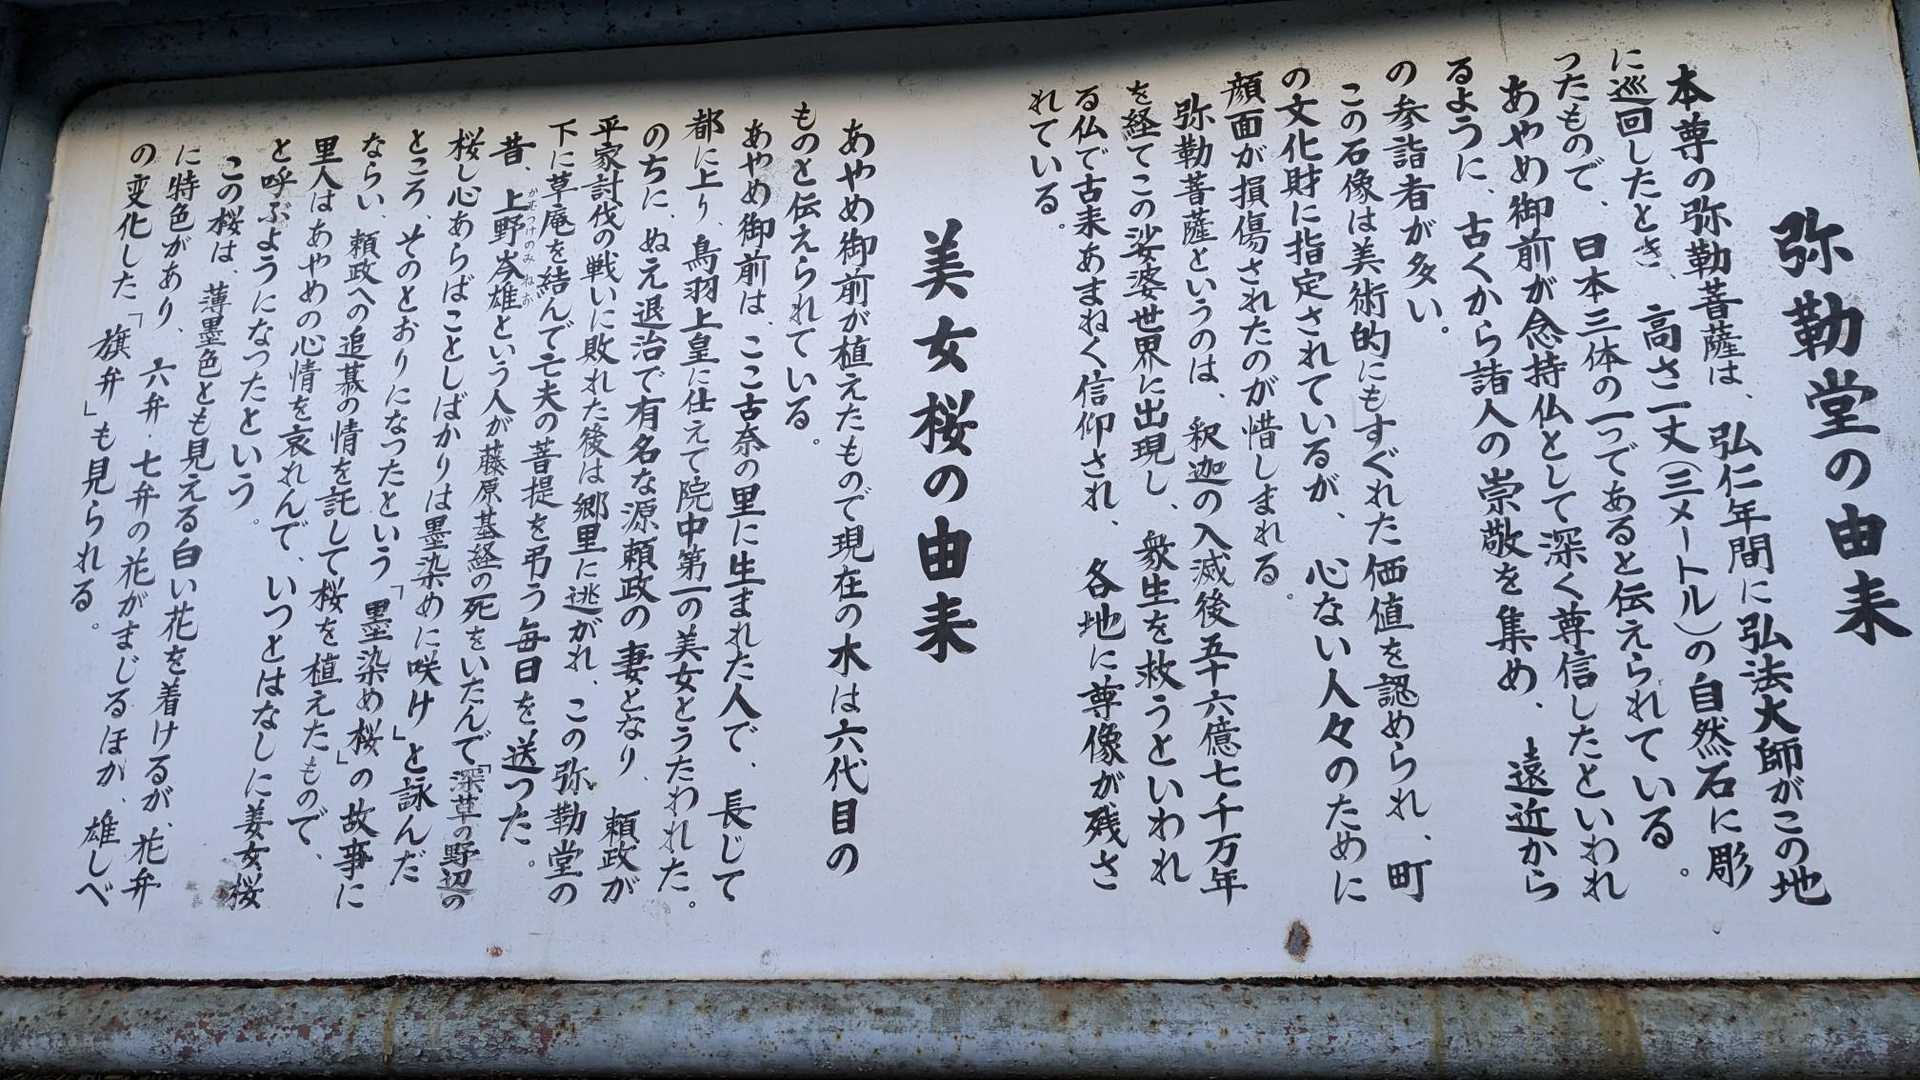 弥勒堂の由来
本尊の弥勒菩薩は、弘仁年間に弘法大師がこの地
に巡回したとき、高さ一丈(三メートル)の自然石に彫
ったもので、日本三体の一つであると伝えられている。
あやめ御前が念持仏として深く尊信したといわれ
るように、古くから諸人の崇敬を集め、遠近から
の参詣者が多い。
この石像は美術的にもすぐれた価値を認められ、町
の文化財に指定されているが、心ない人々のために
顔面が損傷されたのが惜しまれる。
弥勒菩薩というのは、釈迦の入滅後五十六億七千万年
を経てこの娑婆世界に出現し、衆生を救うといわれ
る仏で古来あまねく信仰され、各地に尊像が残さ
れている。
美女桜の由来
あやめ御前が植えたもので現在の水は六代目の
ものと伝えられている。
あやめ御前は、ここ古奈の里に生まれた人で、長じて
都に上り、鳥羽上皇に仕えて院中第一の美女とうたわれた。
のちに、ぬえ退治で有名な源頼政の妻となり、頼政が
平家討伐の戦いに敗れた後は郷里に逃がれ、この弥勒堂の
下に草庵を結んで亡夫の菩提を弔う毎日を送った。
昔、上野岑雄という人が藤原基経の死をいたんで「深草の野辺の
かむつけのみねお
桜し心あらばことしばかりは墨染めに咲け」と詠んだ
ところ、そのとおりになったという「墨染め桜」の故事に
ならい、頼政への追慕の情を託して桜を植えたもので、
里人はあやめの心情を哀れんで、いつとはなしに美女桜
と呼ぶようになったという。
この桜は、薄墨色とも見える白い花を着けるが、花弁
に特色があり、六弁・七弁の花がまじるほか、雄しべ
の変化した「旗弁」も見られる。